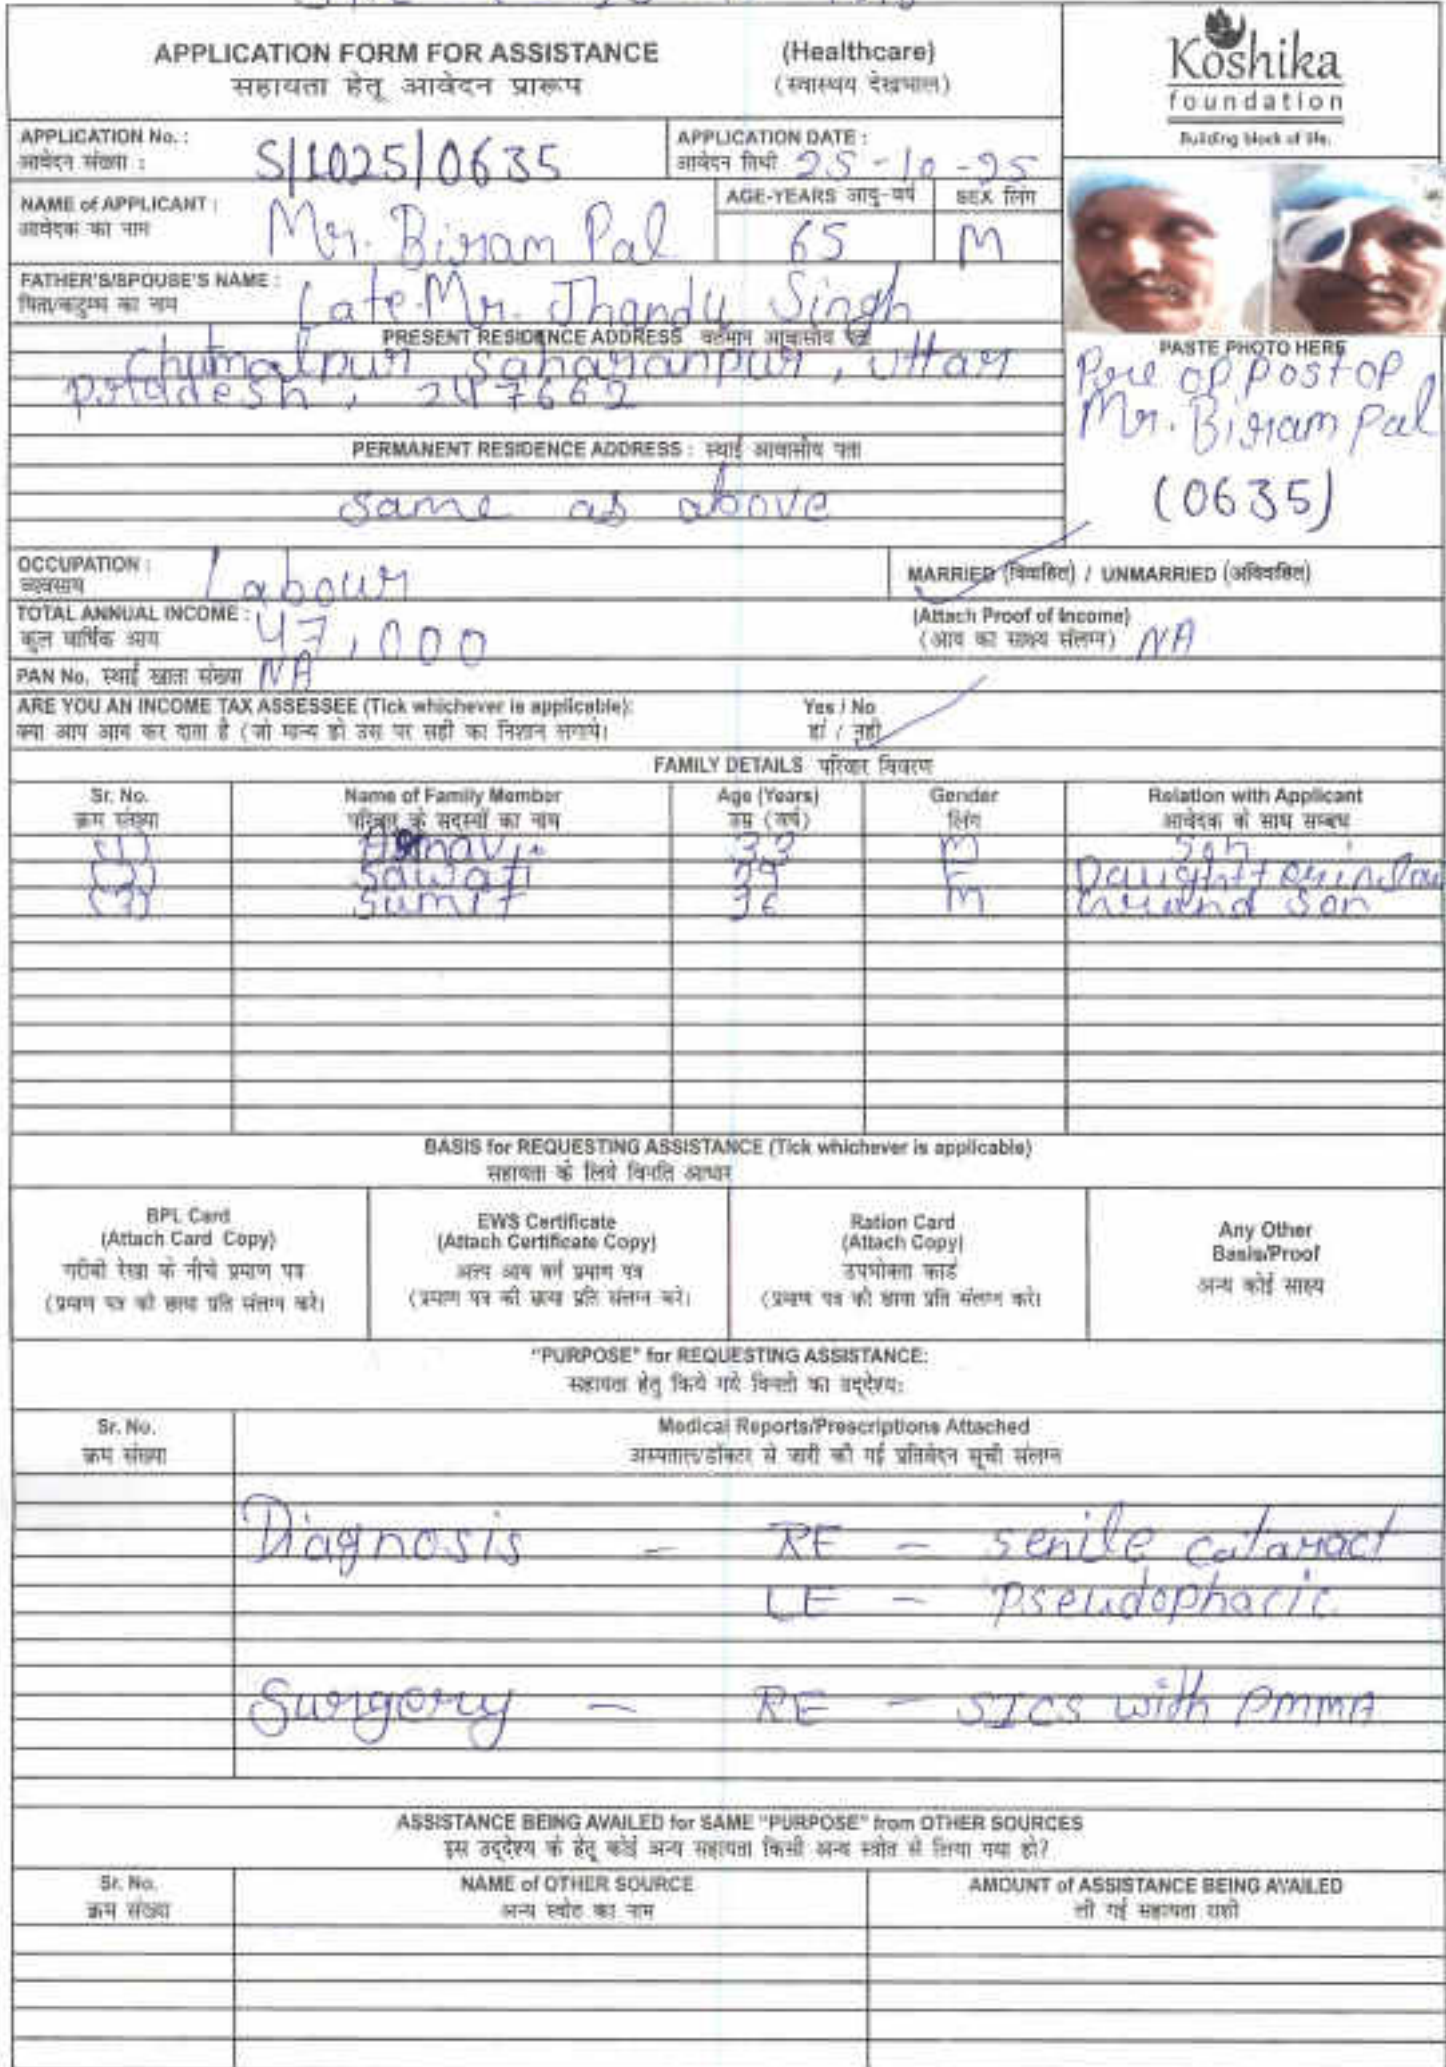 APPLICATION FORM FOR ASSISTANCE (Healthcare)
सहायता हेतू आवेदन प्रारूप (स्वास्थय देखभाल)
Koshika
foundation
Building block of life.
APPLICATION No. :
आवेदन संख्या : S/1025/0635
APPLICATION DATE :
आवेदन तिथी 25-10-25
NAME of APPLICANT :
आवेदक का नाम Mr. Biram Pal
AGE-YEARS आयु-वर्ष 65
SEX लिंग M
FATHER'S/SPOUSE'S NAME :
पिता/कटुम्ब का नाम Late Mr. Jhandu Singh
PRESENT RESIDENCE ADDRESS वर्तमान आवासीय पता
Chutmalpur Saharanpur, Uttar
Pradesh, 247662
PERMANENT RESIDENCE ADDRESS : स्थाई आवासीय पता
same as above
PASTE PHOTO HERE
Pre op post op
Mr. Biram Pal
(0635)
OCCUPATION :
व्यवसाय Labour
MARRIED (विवाहित) / UNMARRIED (अविवाहित)
TOTAL ANNUAL INCOME :
कुल वार्षिक आय 47,000
(Attach Proof of Income)
(आय का साक्ष्य संलग्न) NA
PAN No. स्थाई खाता संख्या NA
ARE YOU AN INCOME TAX ASSESSEE (Tick whichever is applicable): Yes / No
क्या आप आय कर दाता है (जो मान्य हो उस पर सही का निशान लगाये। हां / नही
FAMILY DETAILS परिवार विवरण
Sr. No. Name of Family Member Age (Years) Gender Relation with Applicant
क्रम संख्या परिवार के सदस्यों का नाम उम्र (वर्ष) लिंग आवेदक के साथ सम्बध
(1) 33 M Son
(2) Sawati F Daughter in law
(3) Sumit M Grand son
BASIS for REQUESTING ASSISTANCE (Tick whichever is applicable)
सहायता के लिये विनति आधार
BPL Card
(Attach Card Copy)
गरीबी रेखा के नीचे प्रमाण पत्र
(प्रमाण पत्र की छाया प्रति संलग्न करे।
EWS Certificate
(Attach Certificate Copy)
अल्प आय वर्ग प्रमाण पत्र
(प्रमाण पत्र की छाया प्रति संलग्न करे।
Ration Card
(Attach Copy)
उपभोक्ता कार्ड
(प्रमाण पत्र की छाया प्रति संलग्न करे।
Any Other
Basis/Proof
अन्य कोई साक्ष्य
"PURPOSE" for REQUESTING ASSISTANCE:
सहायता हेतु किये गये विनती का उद्देश्य:
Sr. No. Medical Reports/Prescriptions Attached
क्रम संख्या अस्पताल/डॉक्टर से जारी की गई प्रतिवेदन सूची संलग्न
Diagnosis - RE - senile cataract
LE - pseudophacic
Surgery - RE - SICS with PMMA
ASSISTANCE BEING AVAILED for SAME "PURPOSE" from OTHER SOURCES
इस उद्देश्य के हेतू कोई अन्य सहायता किसी अन्य स्त्रोत से लिया गया हो?
Sr. No. NAME of OTHER SOURCE AMOUNT of ASSISTANCE BEING AVAILED
क्रम संख्या अन्य स्त्रोत का नाम ली गई सहायता राशी